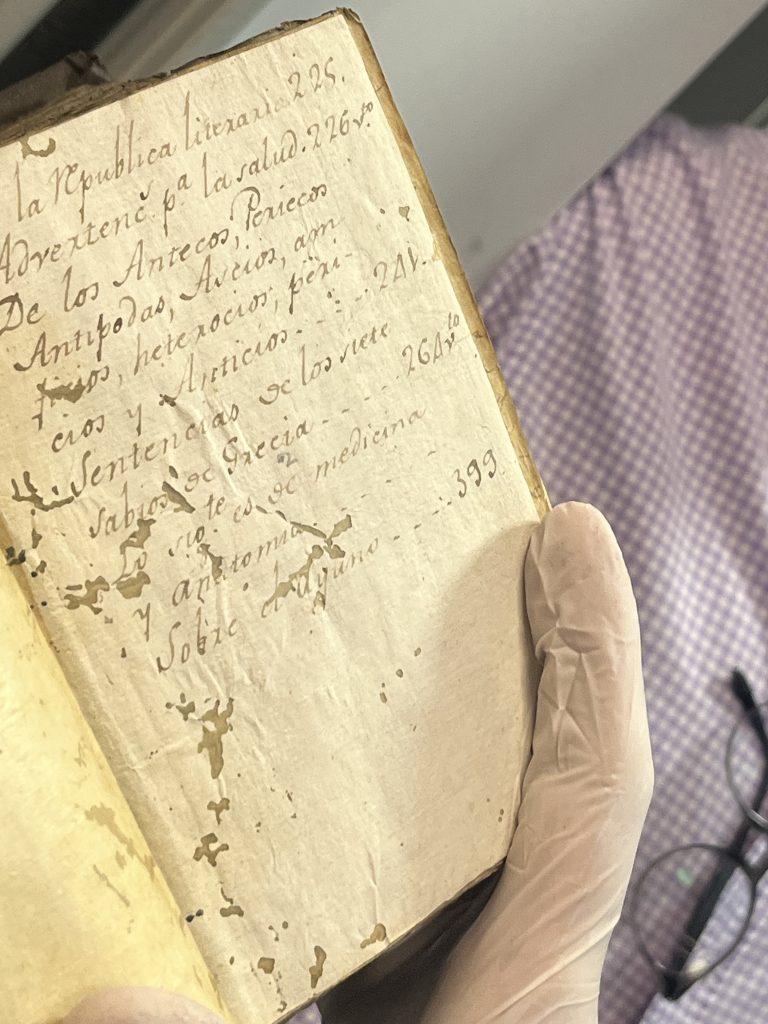 la republica literaria 225.
Advertencs. pa. la salud. 226vto.
De los Antecos, Periecos
Antipodas, Ascios, am
ficios, heterocios, peri-
cios y Anticios - - - - - 241.
Sentencias de los siete
sabios de Grecia - - - - 264vto
Lo sigte. es de medicina
y anatomia - - - - -
Sobre el Ayuno - - - - 399.